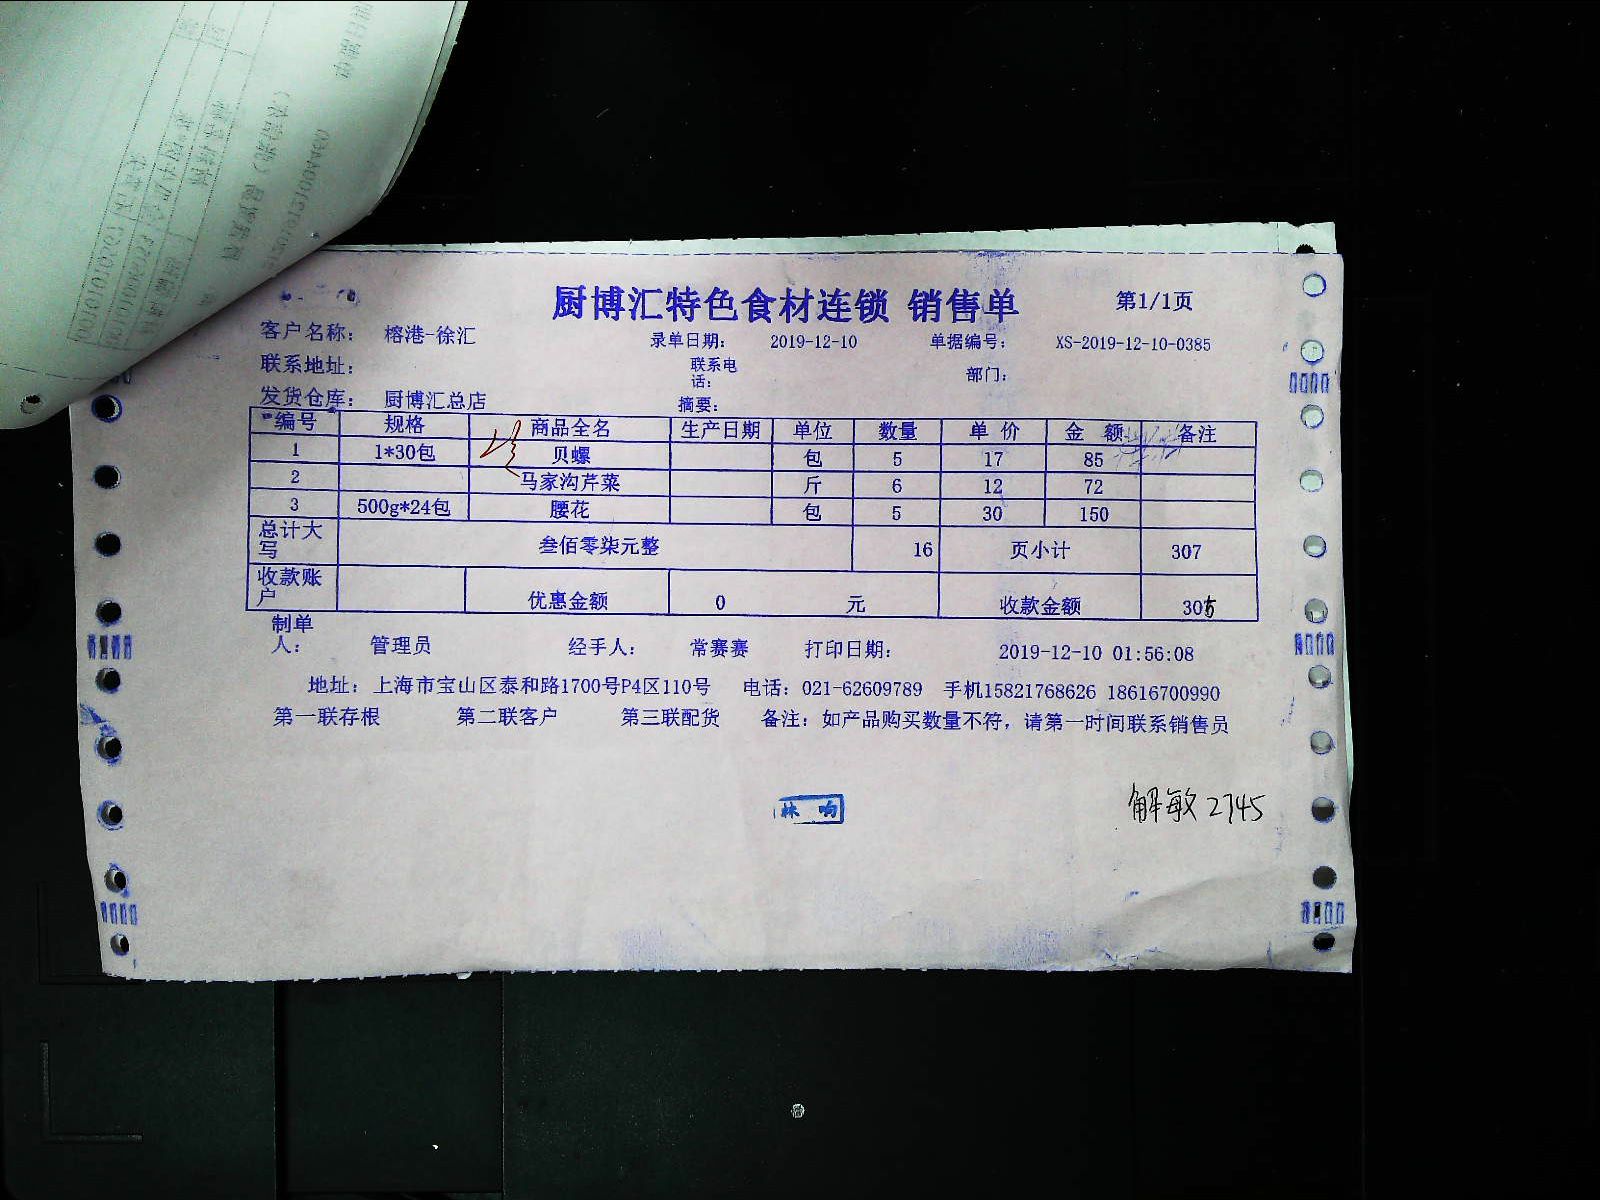 厨博汇特色食材连锁 销售单 第1/1页
客户名称： 榕港-徐汇 录单日期： 2019-12-10 单据编号： XS-2019-12-10-0385
联系地址： 联系电话： 部门：
发货仓库： 厨博汇总店 摘要：
编号 规格 商品全名 生产日期 单位 数量 单价 金额 备注
1 1*30包 贝螺 包 5 17 85
2 马家沟芹菜 斤 6 12 72
3 500g*24包 腰花 包 5 30 150
总计大写 叁佰零柒元整 16 页小计 307
收款账户 优惠金额 0 元 收款金额 305
制单人： 管理员 经手人： 常赛赛 打印日期： 2019-12-10 01:56:08
地址：上海市宝山区泰和路1700号P4区110号 电话：021-62609789 手机15821768626 18616700990
第一联存根 第二联客户 第三联配货 备注：如产品购买数量不符，请第一时间联系销售员
林响
解敏2745